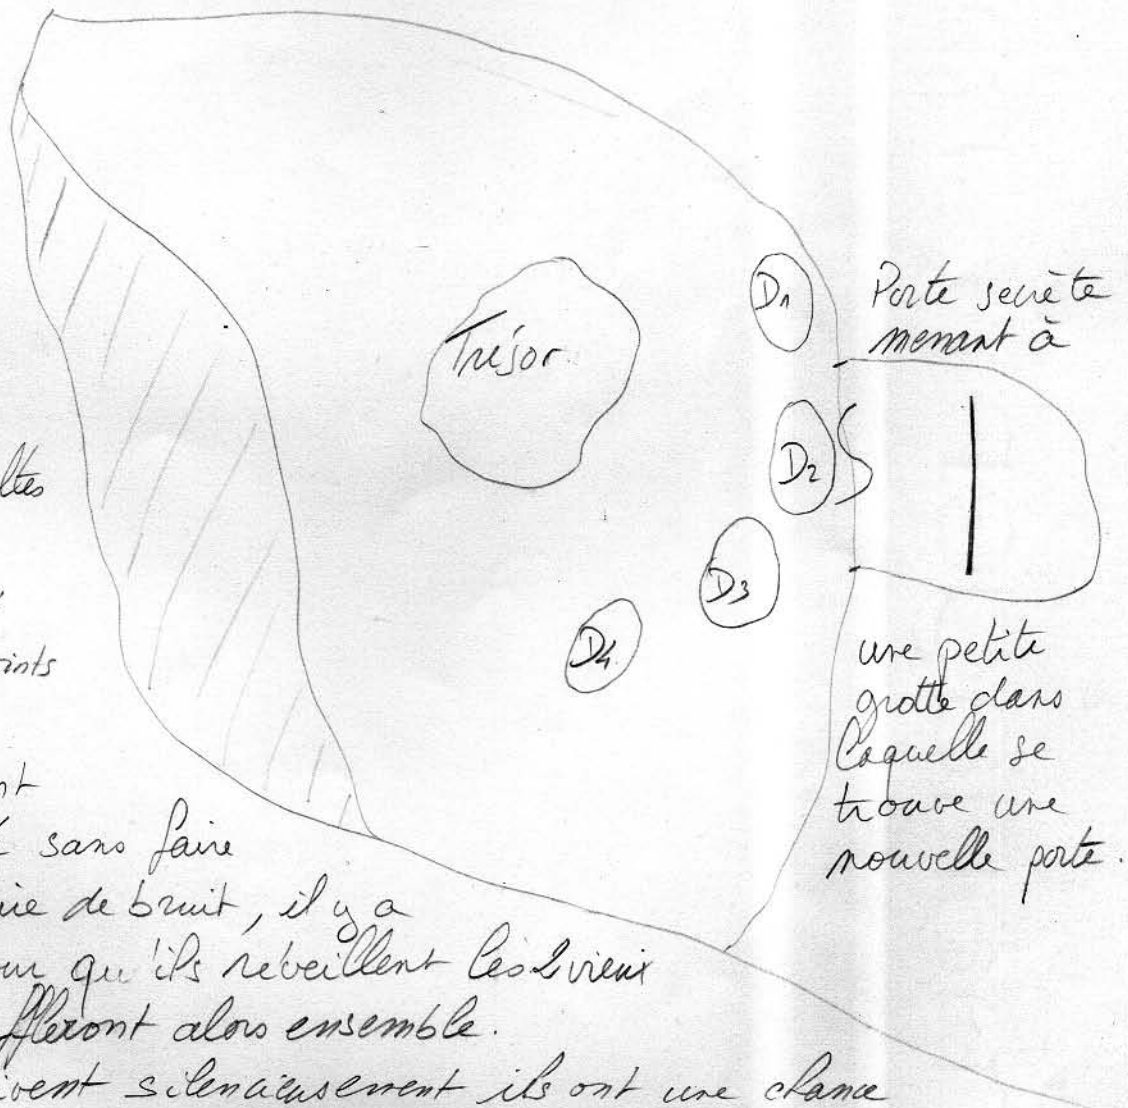 Trésor
D1
D2
D3
D4
Porte secrète
menant à
une petite
grotte dans
laquelle se
trouve une
nouvelle porte.
ltes
ints
nt
sans faire
de bruit, il y a
ur qu'ils réveillent les 2 vieux
ffleront alors ensemble.
ivent silencieusement ils ont une chance